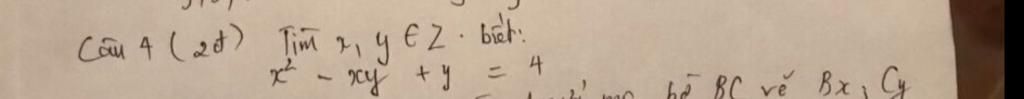 Câu 4 (2đ) Tìm x, y ∈ Z. biết:
x² - xy + y = 4
bờ BC vẽ Bx, Cy